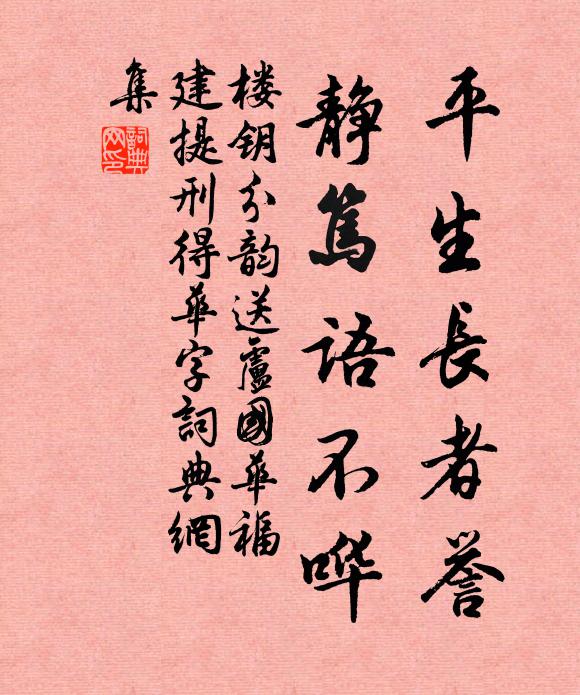 平生長者誉
静篤語不哗
楼钥分韵送盧國華福
建提刑得華字詞典網
集
詞典网印